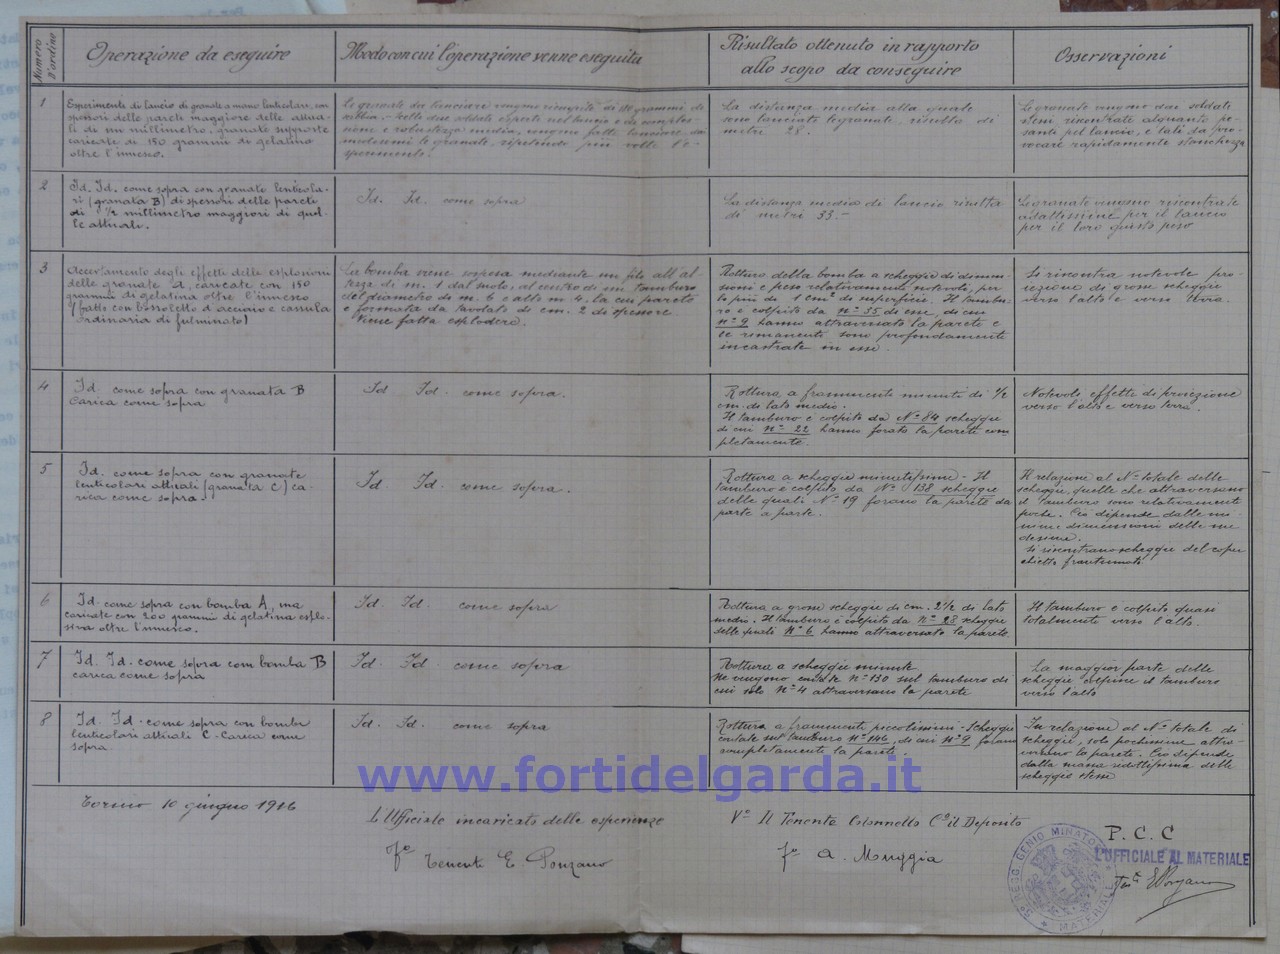 Numero d'ordine
Operazione da eseguire
Modo con cui l'operazione venne eseguita
Risultato ottenuto in rapporto
allo scopo da conseguire
Osservazioni
1
Esperimento di lancio di granate a mano lenticolari, con
spessori delle pareti maggiore delle attua-
li di un millimetro, granate supposte
caricate di 150 grammi di gelatina
oltre l'innesco.
Le granate da lanciare vengono riempite di 150 grammi di
sabbia. - Sette dieci soldati esperti nel lancio e da comples-
sione e robustezza media, vengono fatti lanciare dai
medesimi le granate, ripetendo più volte l'e-
sperimento.
La distanza media alla quale
sono lanciate le granate, risulta di
metri 28.
Le granate vengono dai soldati
stessi riscontrate alquanto pe-
santi pel lancio, e tali da pro-
vocare rapidamente stanchezza
2
Id. Id. come sopra con granate lenticola-
ri (granata B) di spessori delle pareti
di 1/2 millimetro maggiori di quel-
le attuali.
Id. Id. come sopra
La distanza media di lancio risulta
di metri 33.-
Le granate vengono riscontrate
adattissime per il lancio
per il loro giusto peso
3
Accertamento degli effetti delle esplosioni
delle granate A, caricate con 150
grammi di gelatina oltre l'innesco
(fatto con bossoletto d'acciaio e cassula
ordinaria di fulminato)
La bomba viene sospesa mediante un filo all'al-
tezza di m. 1 dal suolo, al centro di un tamburo
del diametro di m. 6 e alto m 4, la cui parete
è formata da tavolato di cm. 2 di spessore
Viene fatta esplodere.
Rottura della bomba a scheggie di dimen-
sioni e peso relativamente notevoli, per
lo più di 1 cm² di superficie. Il tambu-
ro è colpito da n° 35 di esse, di cui
n° 9 hanno attraversato la parete e
le rimanenti sono profondamente
incastrate in essi.
Si riscontra notevole pro-
iezione di grosse scheggie
verso l'alto e verso terra.
4
Id. come sopra con granata B
Carica come sopra
Id Id. come sopra.
Rottura a frammenti minuti di 1/2
cm. di lato medio.
Il tamburo è colpito da N° 84 scheggie
di cui n° 22 hanno forato la parete com-
pletamente.
Notevoli effetti di proiezione
verso l'alto e verso terra.
5
Id. come sopra con granate
lenticolari attuali (granata C) ca-
rica come sopra.
Id Id. come sopra.
Rottura a scheggie minutissime - Il
tamburo è colpito da N° 138 scheggie
delle quali N° 19 forano la parete da
parte a parte.
In relazione al N° totale delle
scheggie, quelle che attraversano
il tamburo sono relativamente
poche. Ciò dipende dalle mi-
nime dimensioni delle me
desime.
Si riscontrano scheggie del coper
chietto frantumati
6
Id. come sopra con bomba A, ma
caricate con 200 grammi di gelatina esplo-
siva oltre l'innesco.
Id. Id. come sopra
Rottura a grosse scheggie di cm. 2 1/2 di lato
medio. Il tamburo è colpito da n° 28 scheggie
delle quali n° 6 hanno attraversato la parete.
Il tamburo è colpito quasi
totalmente verso l'alto.
7
Id. Id. come sopra con bomba B
carica come sopra
Id. Id. come sopra
Rottura a scheggie minute
Ne vengono contate n° 130 sul tamburo di
cui solo n° 4 attraversano la parete
La maggior parte delle
scheggie colpisce il tamburo
verso l'alto
8
Id. Id. come sopra con bombe
lenticolari attuali C - Carica come
sopra.
Id. Id. come sopra
Rottura a frammenti piccolissimi - Scheggie
contate sul tamburo n° 146, di cui n° 9 forano
completamente la parete.
In relazione al N° totale di
scheggie, solo pochissime attra-
versano la parete. Ciò dipende
dalla massa ridottissima delle
scheggie stesse
www.fortidelgarda.it
Torino 10 giugno 1916
L'Ufficiale incaricato delle esperienze
F° Tenente E. Ponzano
V° Il Tenente Colonnello C° il Deposito
F° A. Muggia
P. C. C
L'UFFICIALE AL MATERIALE
5° REGG. GENIO MINATORI
MATERIALE